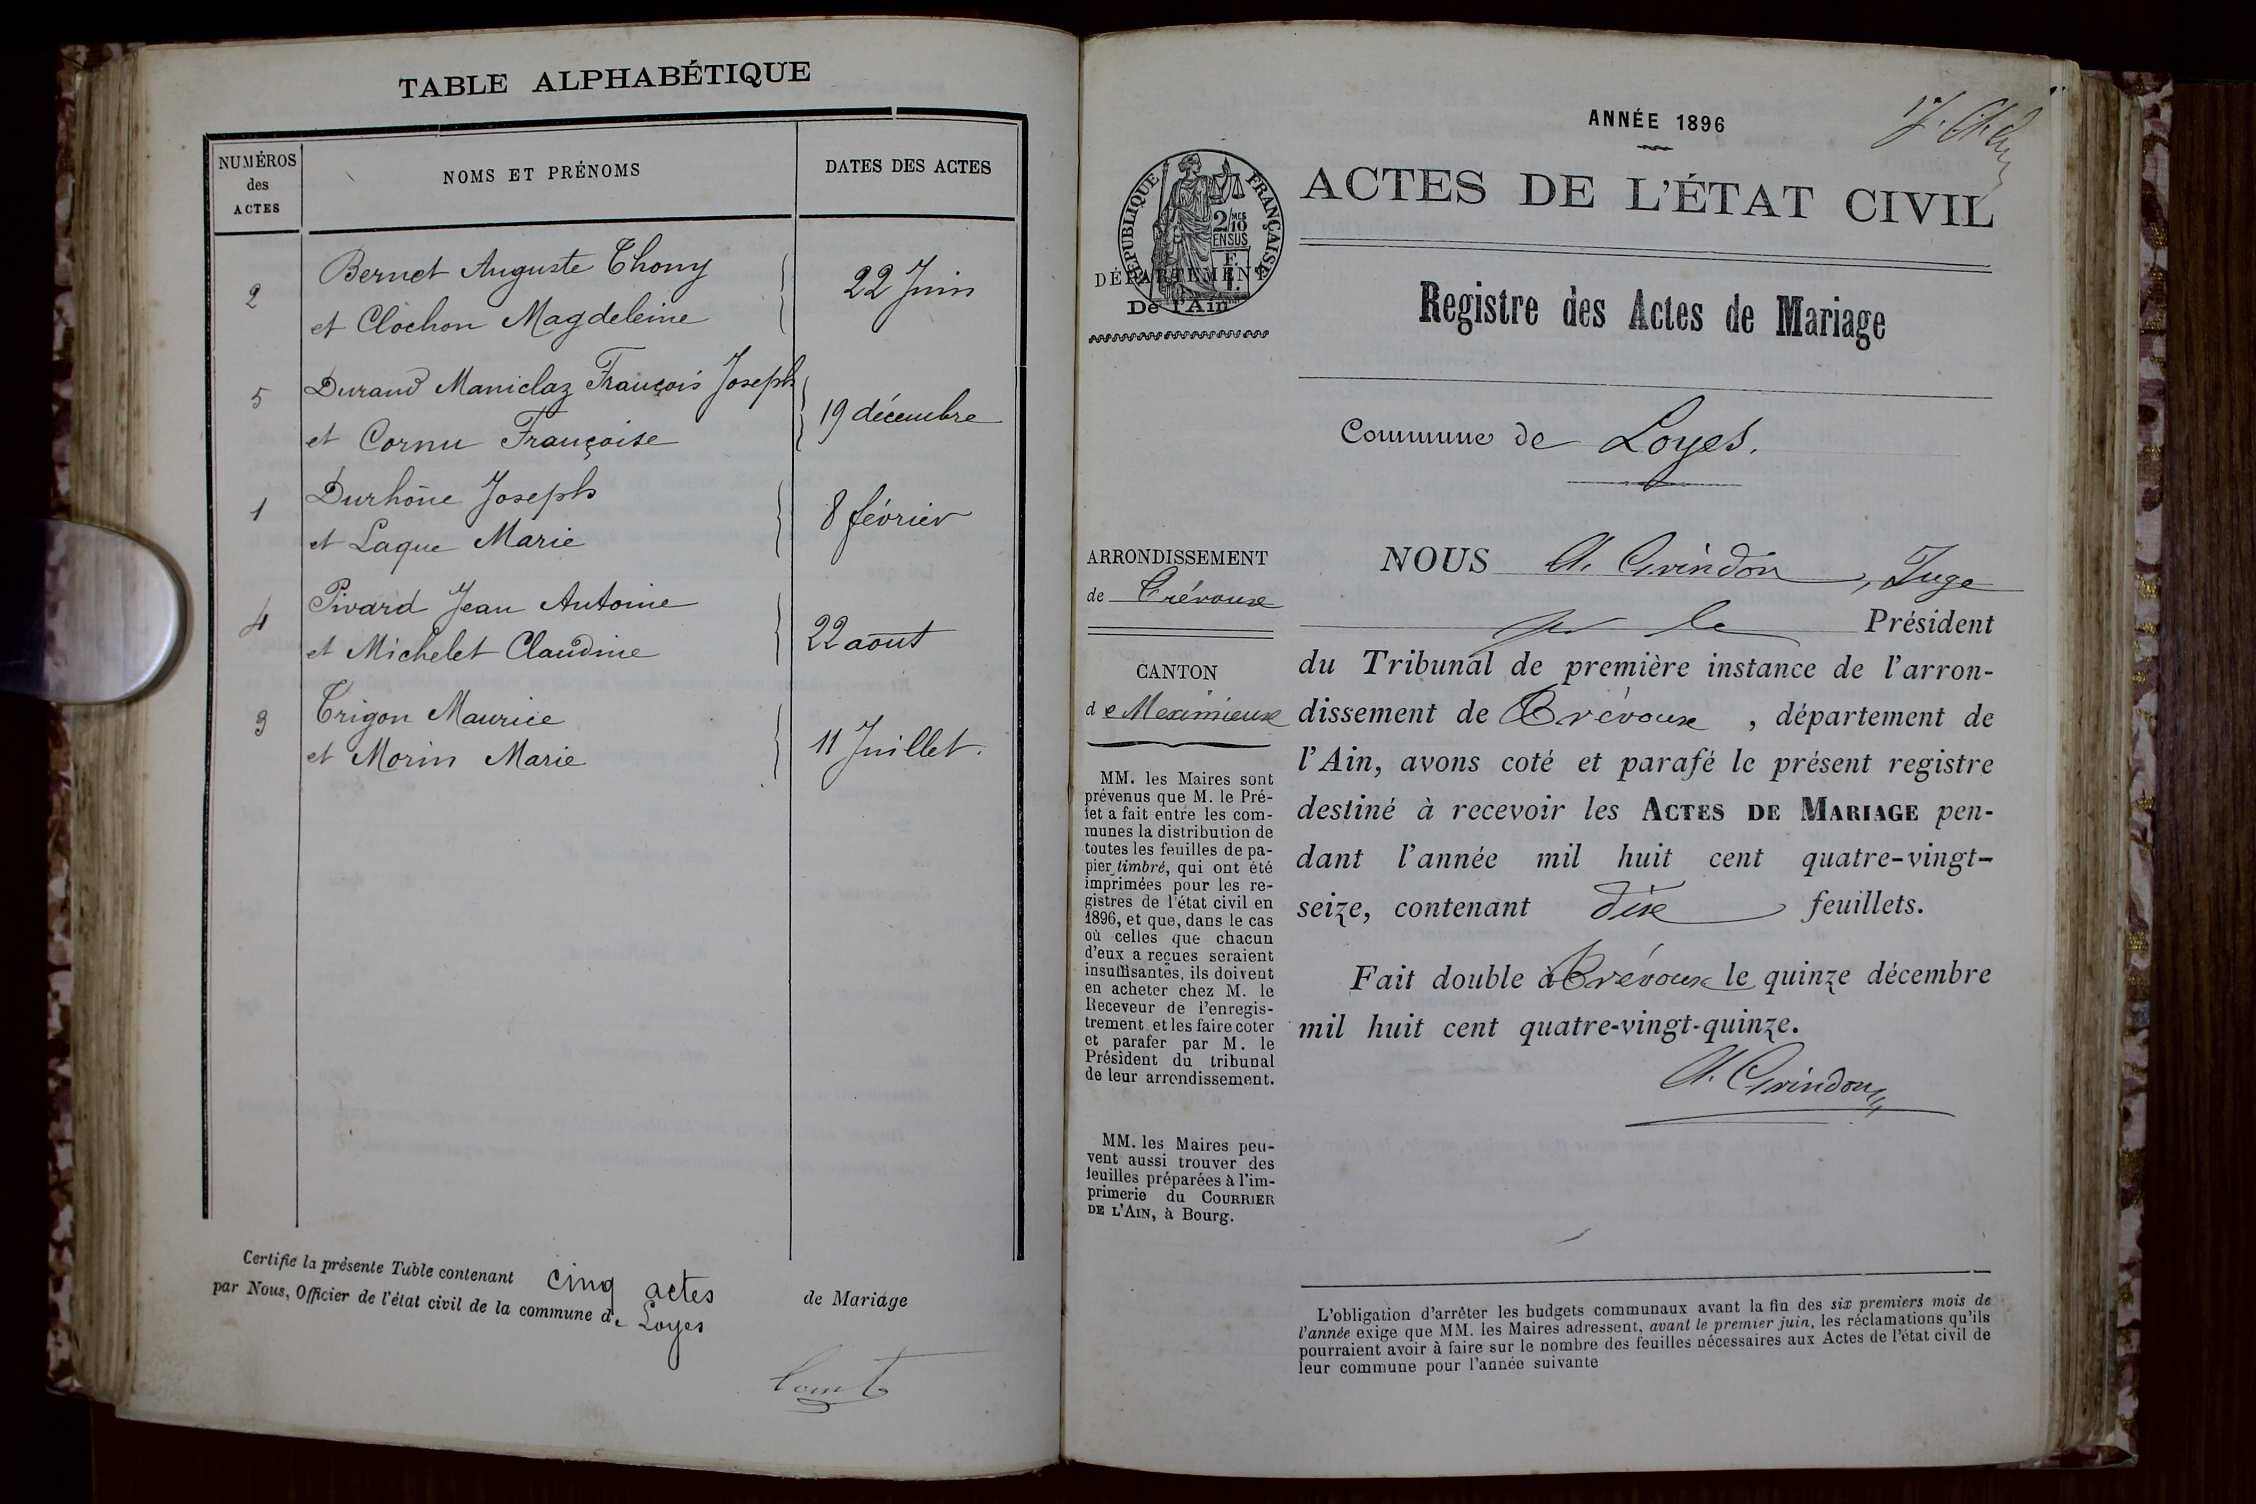 TABLE ALPHABÉTIQUE
NUMÉROS
des
ACTES
NOMS ET PRÉNOMS
DATES DES ACTES
2
Bernet Auguste Thony
et Clochon Magdeleine
22 Juin
5
Durand Maniclaz François Joseph
et Cornu Françoise
19 décembre
1
Durhône Joseph
et Laque Marie
8 février
4
Pivard Jean Antoine
et Michelet Claudine
22 août
3
Trigon Maurice
et Morin Marie
11 Juillet.
Certifié la présente Table contenant cinq actes de Mariage
par Nous, Officier de l'état civil de la commune de Loyes
ANNÉE 1896
ACTES DE L'ÉTAT CIVIL
RÉPUBLIQUE FRANÇAISE
2/10 MES
EN SUS
DÉPARTEMENT
De l'Ain
Registre des Actes de Mariage
Commune de Loyes.
ARRONDISSEMENT
de Trévoux
CANTON
de Meximieux
MM. les Maires sont
prévenus que M. le Pré-
fet a fait entre les com-
munes la distribution de
toutes les feuilles de pa-
pier timbré, qui ont été
imprimées pour les re-
gistres de l'état civil en
1896, et que, dans le cas
où celles que chacun
d'eux a reçues seraient
insuffisantes, ils doivent
en acheter chez M. le
Receveur de l'enregis-
trement et les faire coter
et parafer par M. le
Président du tribunal
de leur arrondissement.
MM. les Maires peu-
vent aussi trouver des
feuilles préparées à l'im-
primerie du COURRIER
DE L'AIN, à Bourg.
NOUS A. Grindon, Juge
pr le Président
du Tribunal de première instance de l'arron-
dissement de Trévoux, département de
l'Ain, avons coté et parafé le présent registre
destiné à recevoir les ACTES DE MARIAGE pen-
dant l'année mil huit cent quatre-vingt-
seize, contenant dix feuillets.
Fait double à Trévoux le quinze décembre
mil huit cent quatre-vingt-quinze.
A. Grindon
L'obligation d'arrêter les budgets communaux avant la fin des six premiers mois de
l'année exige que MM. les Maires adressent, avant le premier juin, les réclamations qu'ils
pourraient avoir à faire sur le nombre des feuilles nécessaires aux Actes de l'état civil de
leur commune pour l'année suivante